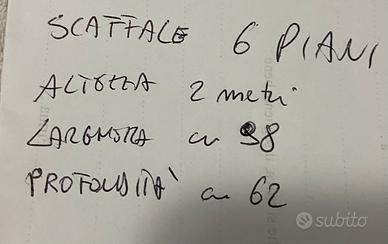 SCAFFALE 6 PIANI
ALTEZZA 2 metri
LARGHEZZA cm 98
PROFONDITÀ cm 62
subito